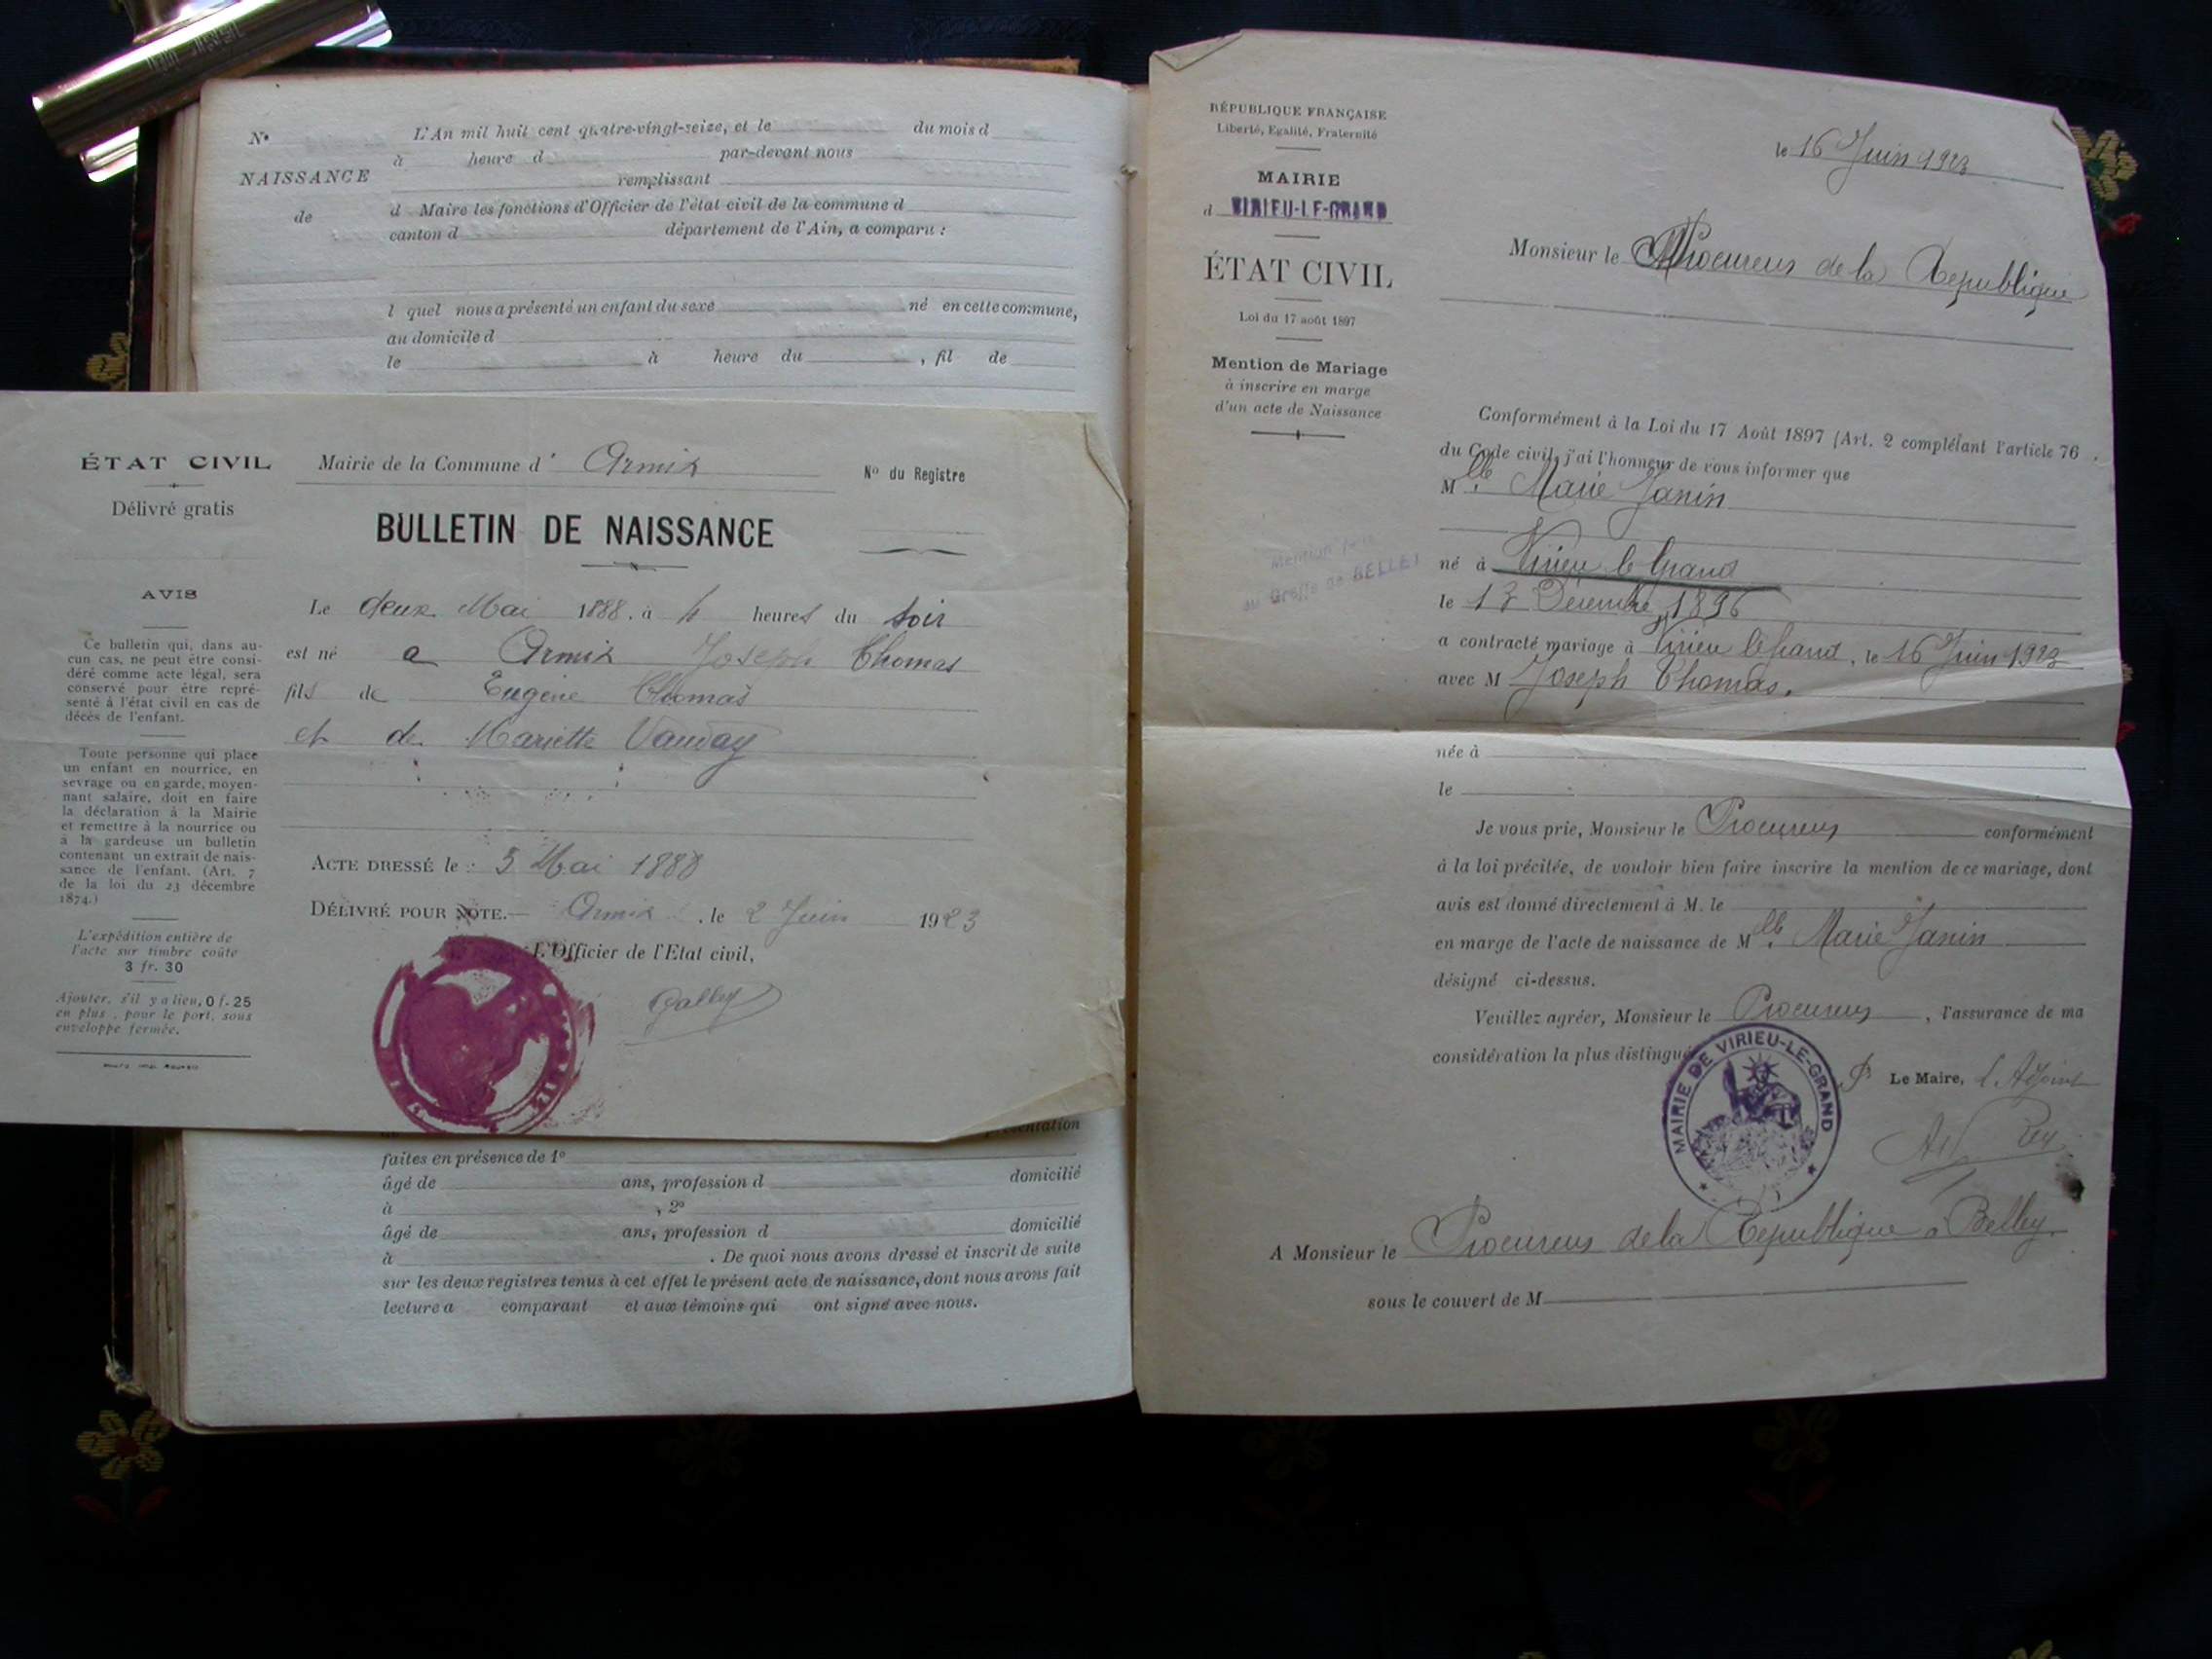 N°
NAISSANCE
de
L'An mil huit cent quatre-vingt-seize, et le du mois d
à heure d par-devant nous
remplissant
d Maire les fonctions d'Officier de l'état civil de la commune d
canton d département de l'Ain, a comparu :
l quel nous a présenté un enfant du sexe né en cette commune,
au domicile d
le à heure du , fil de
ÉTAT CIVIL
Délivré gratis
AVIS
Ce bulletin qui, dans au-
cun cas, ne peut être consi-
déré comme acte légal, sera
conservé pour être repré-
senté à l'état civil en cas de
décès de l'enfant.
Toute personne qui place
un enfant en nourrice, en
sevrage ou en garde, moyen-
nant salaire, doit en faire
la déclaration à la Mairie
et remettre à la nourrice ou
à la gardeuse un bulletin
contenant un extrait de nais-
sance de l'enfant. (Art. 7
de la loi du 23 décembre
1874.)
L'expédition entière de
l'acte sur timbre coûte
3 fr. 30
Ajouter, s'il y a lieu, 0 f. 25
en plus, pour le port, sous
enveloppe fermée.
Mairie de la Commune d' Armix
N° du Registre
BULLETIN DE NAISSANCE
Le deux Mai 1888. à 4 heures du soir
est né a Armix Joseph Thomas
fils de Eugène Thomas
et de Mariette Vauday
ACTE DRESSÉ le : 3 Mai 1888
DÉLIVRÉ POUR NOTE.— Armix . le 2 Juin 1923
L'Officier de l'Etat civil,
faites en présence de 1°
âgé de ans, profession d domicilié
à , 2°
âgé de ans, profession d domicilié
à . De quoi nous avons dressé et inscrit de suite
sur les deux registres tenus à cet effet le présent acte de naissance, dont nous avons fait
lecture a comparant et aux témoins qui ont signé avec nous.
RÉPUBLIQUE FRANÇAISE
Liberté, Egalité, Fraternité
MAIRIE
d VIRIEU-LE-GRAND
ÉTAT CIVIL
Loi du 17 août 1897
Mention de Mariage
à inscrire en marge
d'un acte de Naissance
Mention faite
au Greffe de BELLEY
le 16 Juin 1923
Monsieur le Procureur de la Republique
Conformément à la Loi du 17 Août 1897 (Art. 2 complétant l'article 76
du Code civil, j'ai l'honneur de vous informer que
M lle. Marie Janin
né à Virieu le Grand
le 13 Décembre 1896
a contracté mariage à Virieu le Grand, le 16 Juin 1923
avec M Joseph Thomas.
née à
le
Je vous prie, Monsieur le Procureur conformément
à la loi précitée, de vouloir bien faire inscrire la mention de ce mariage, dont
avis est donné directement à M. le "
en marge de l'acte de naissance de M lle. Marie Janin
désigné ci-dessus.
Veuillez agréer, Monsieur le Procureur , l'assurance de ma
considération la plus distingué
MAIRIE DE VIRIEU-LE-GRAND
P. Le Maire, l'Adjoint
A Monsieur le Procureur de la Republique à Belley.
sous le couvert de M